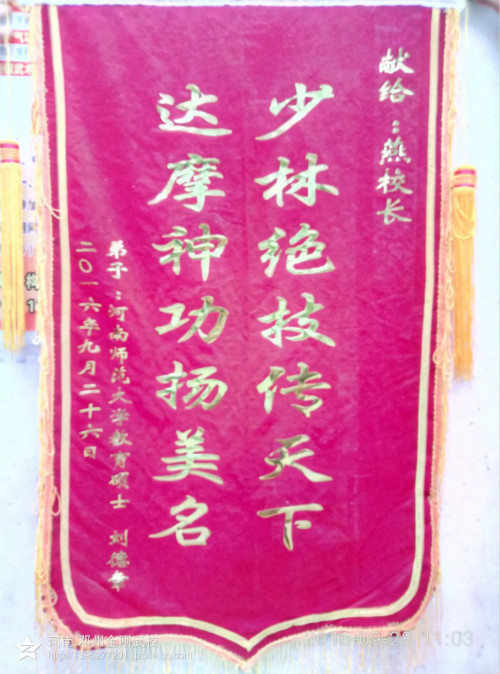 献给：燕校长
少林绝技传天下
达摩神功扬美名
弟子：河南师范大学教育硕士 刘德华
二〇一六年九月二十六日
河南 邓州金刚武校
11:03